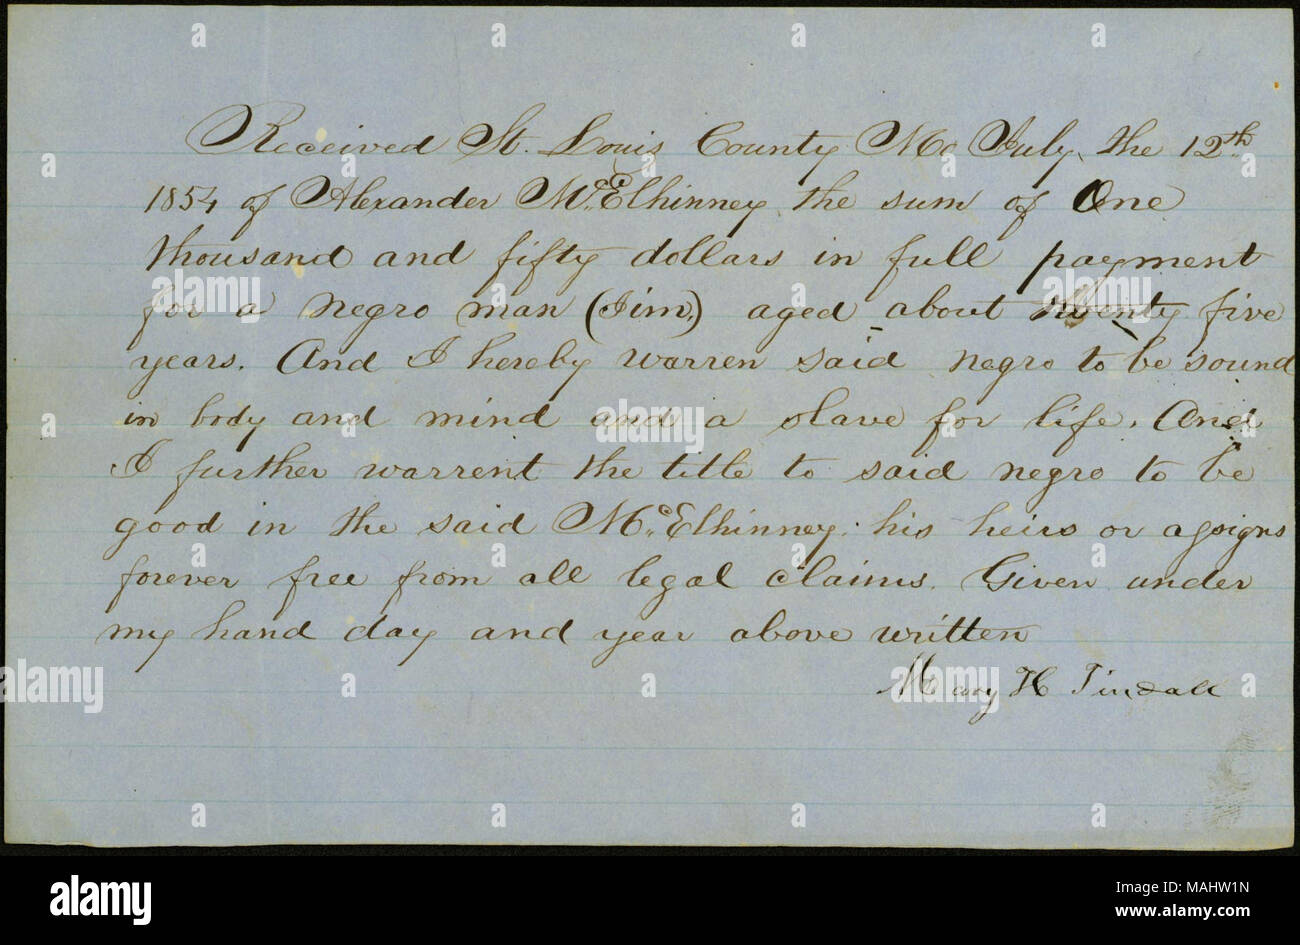 Received St. Louis County Mo July the 12th
1854 of Alexander McElhinney the sum of One
thousand and fifty dollars in full payment
for a negro man (Jim.) aged about twenty five
years. And I hereby warren said negro to be sound
in body and mind and a slave for life. And
I further warrent the title to said negro to be
good in the said McElhinney his heirs or assigns
forever free from all legal claims. Given under
my hand day and year above written
Mary H Tindall
alamy
alamy stock photo
alamy
Image ID: MAHW1N
www.alamy.com